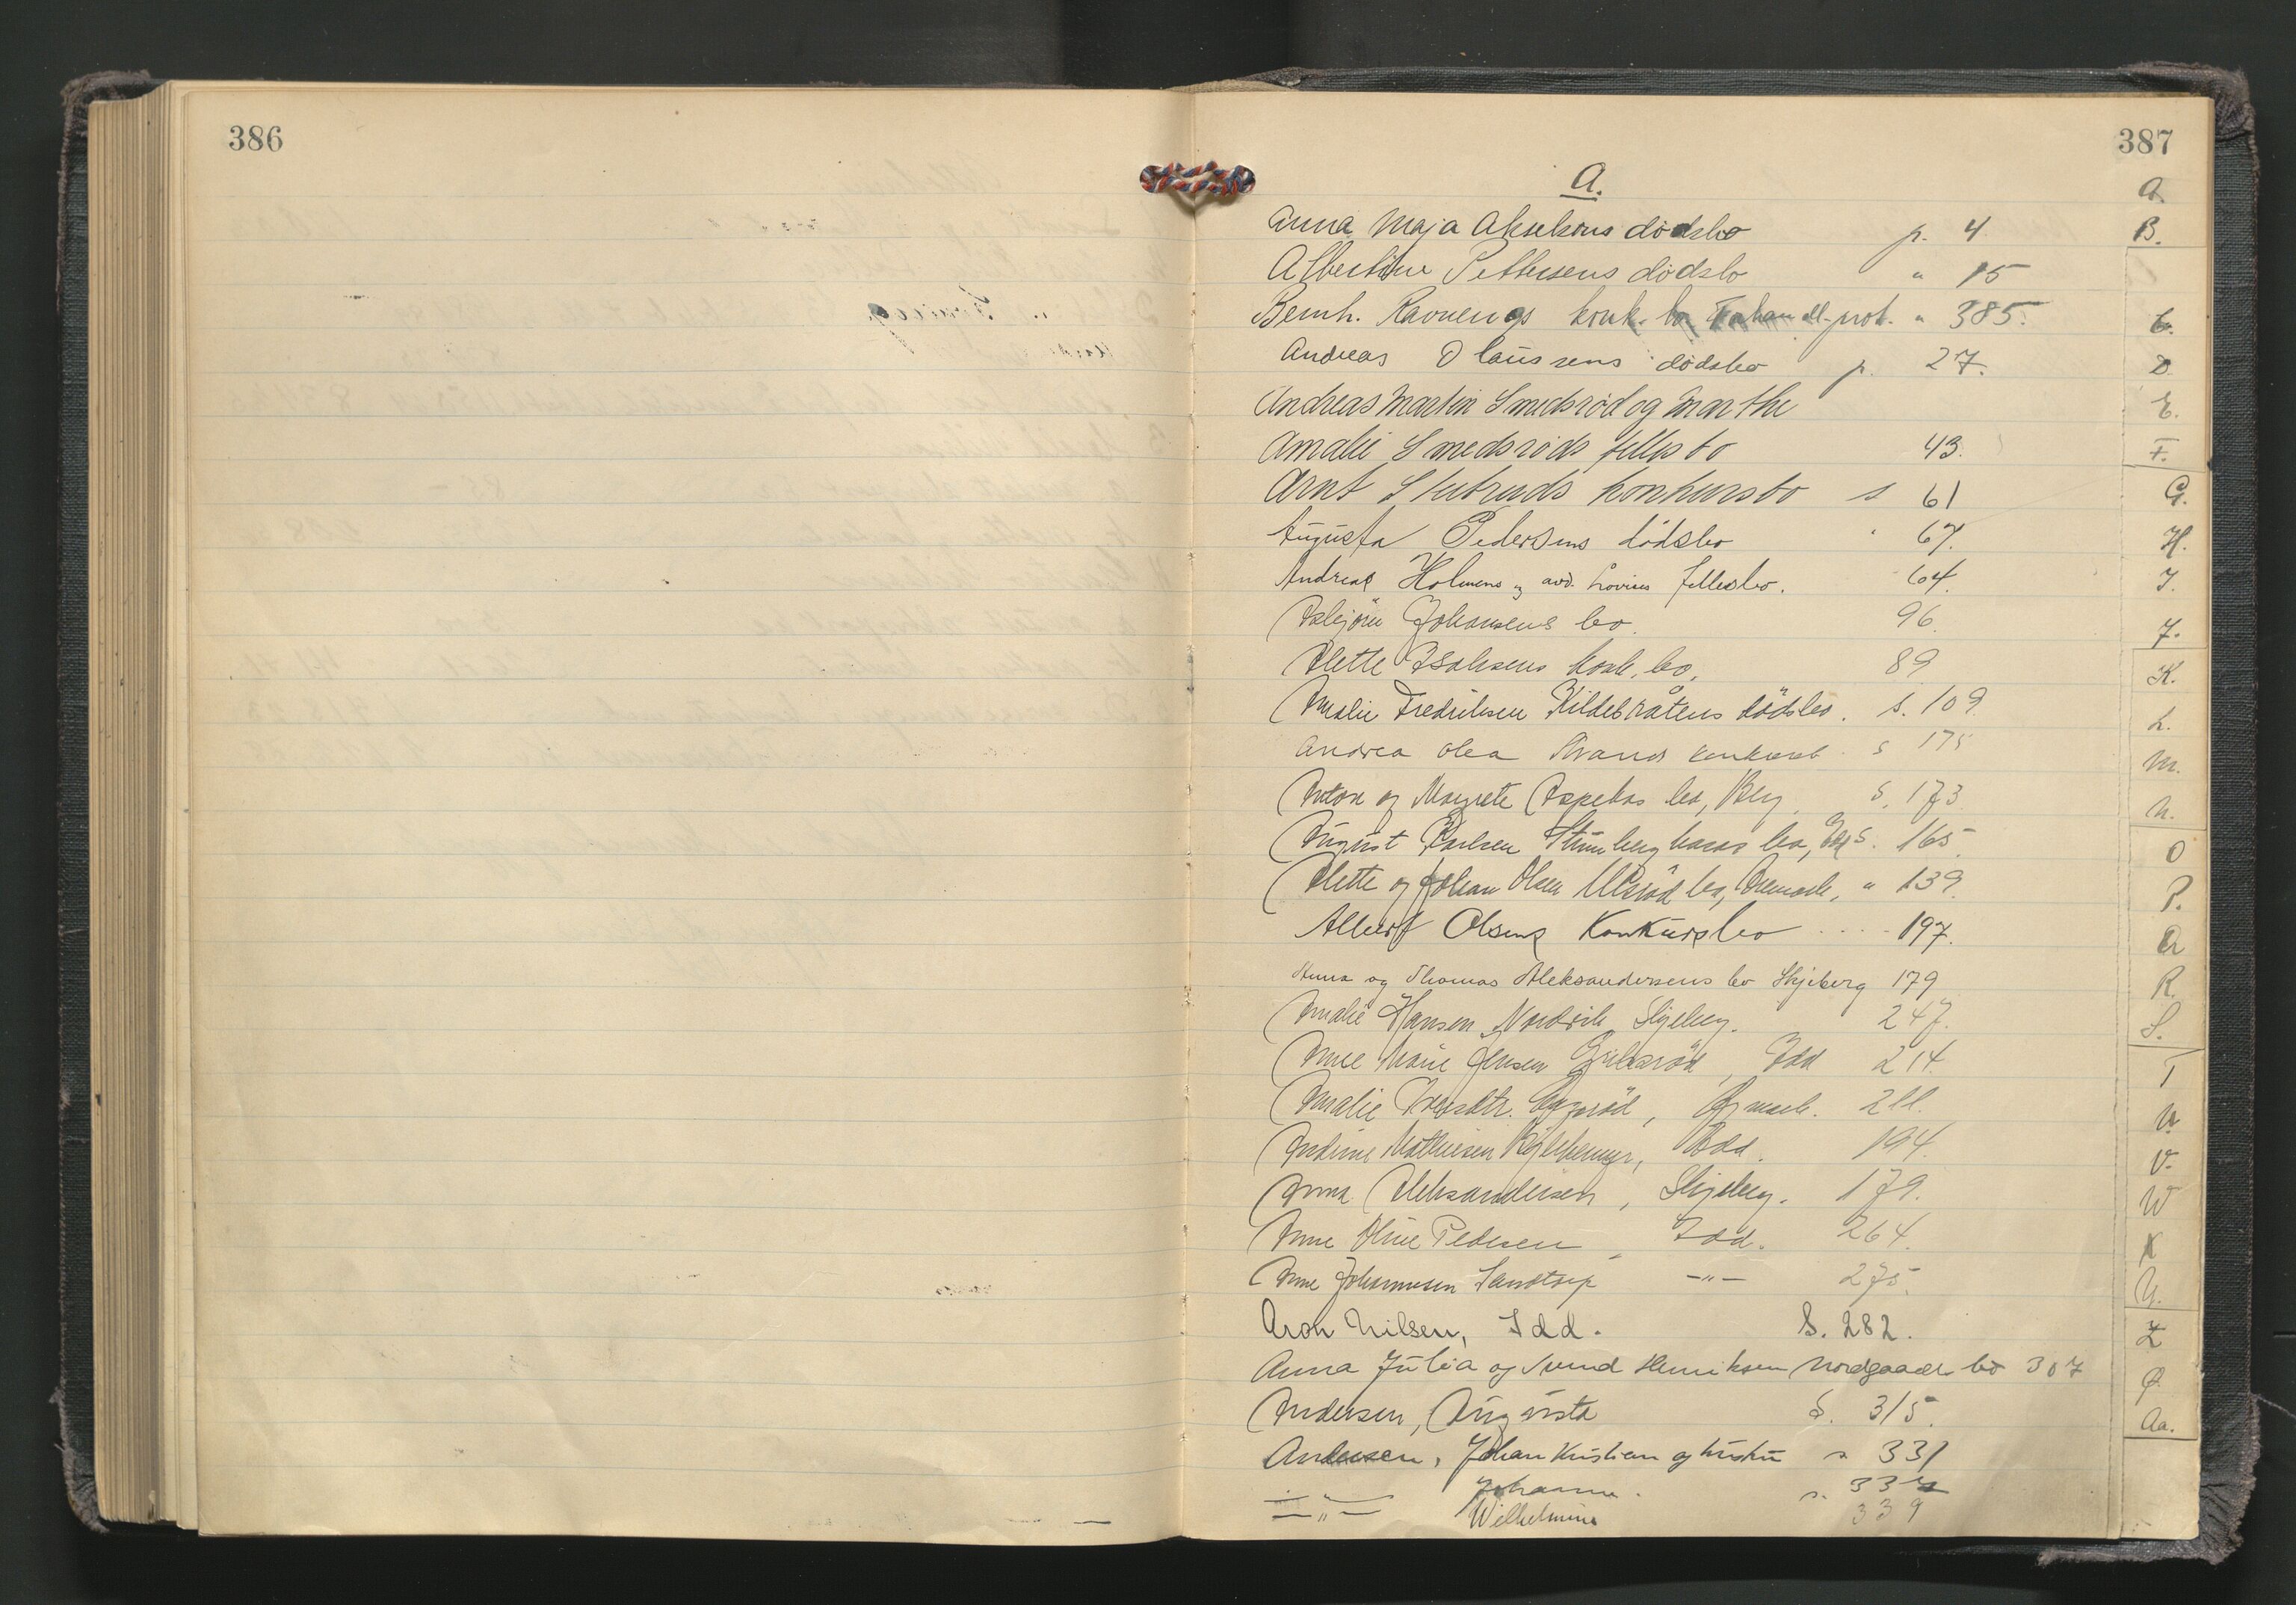 386
387
A.
Anna Maja Akselsens dödsbo p. 4
Albertine Pettersens dödsbo " 15
Bernh. Ravnengs konk. bo Fahandl-prot. " 385.
Andreas Olaussens dödsbo p. 27.
Andreas Martin Smedsröd og Marthe
Amalie Smedsröds fellesbo 43.
Arnt Stubruds konkursbo s 61
Augusta Pedersens dödsbo " 67.
Andreas Holmens og avd. Lovises fellesbo. 64.
Asbjörn Johansens bo. 96.
Alette Isaksens konk. bo. 89
Amalie Fredriksen Kildebråtens dödsbo. s. 109.
Andrea Olea Strands konkursb. s 175
Anton og Margrete Aspebos bo, Berg. S. 173
August Karlsen bo, Idd S. 165.
Alette og Johan Olsen Ulsröd bo, Aremark, " 139.
Albert Olsens Konkursbo .... 197.
Anna og Thomas Aleksandersens bo Skjeberg 179
Amalie Hansen Nordvik Skjeberg. 247.
Anne Marie Jensen, Idd 214.
Amalie 211.
Andrine Mathiesen, Idd. 194.
Anna Aleksandersen, Skjeberg. 179.
Anne Oline Pedersen, Idd. 264.
Anne Johannesen Sandtorp —"— 275.
Aron Nilsen, Idd. S. 282.
Anna Julia og Svend Henriksen Nordgaards bo 307
Andersen, Augusta S. 315.
Andersen, Johan Kristian og Kristine s 331
—"— Johanne. s. 337
—"— Wilhelmine 339
A.
B.
C.
D
E.
F.
G.
H.
I.
J.
K.
L.
M.
N.
O
P.
Q
R.
S.
T
U
V.
W
X
Y.
Z
Ø
Aa.